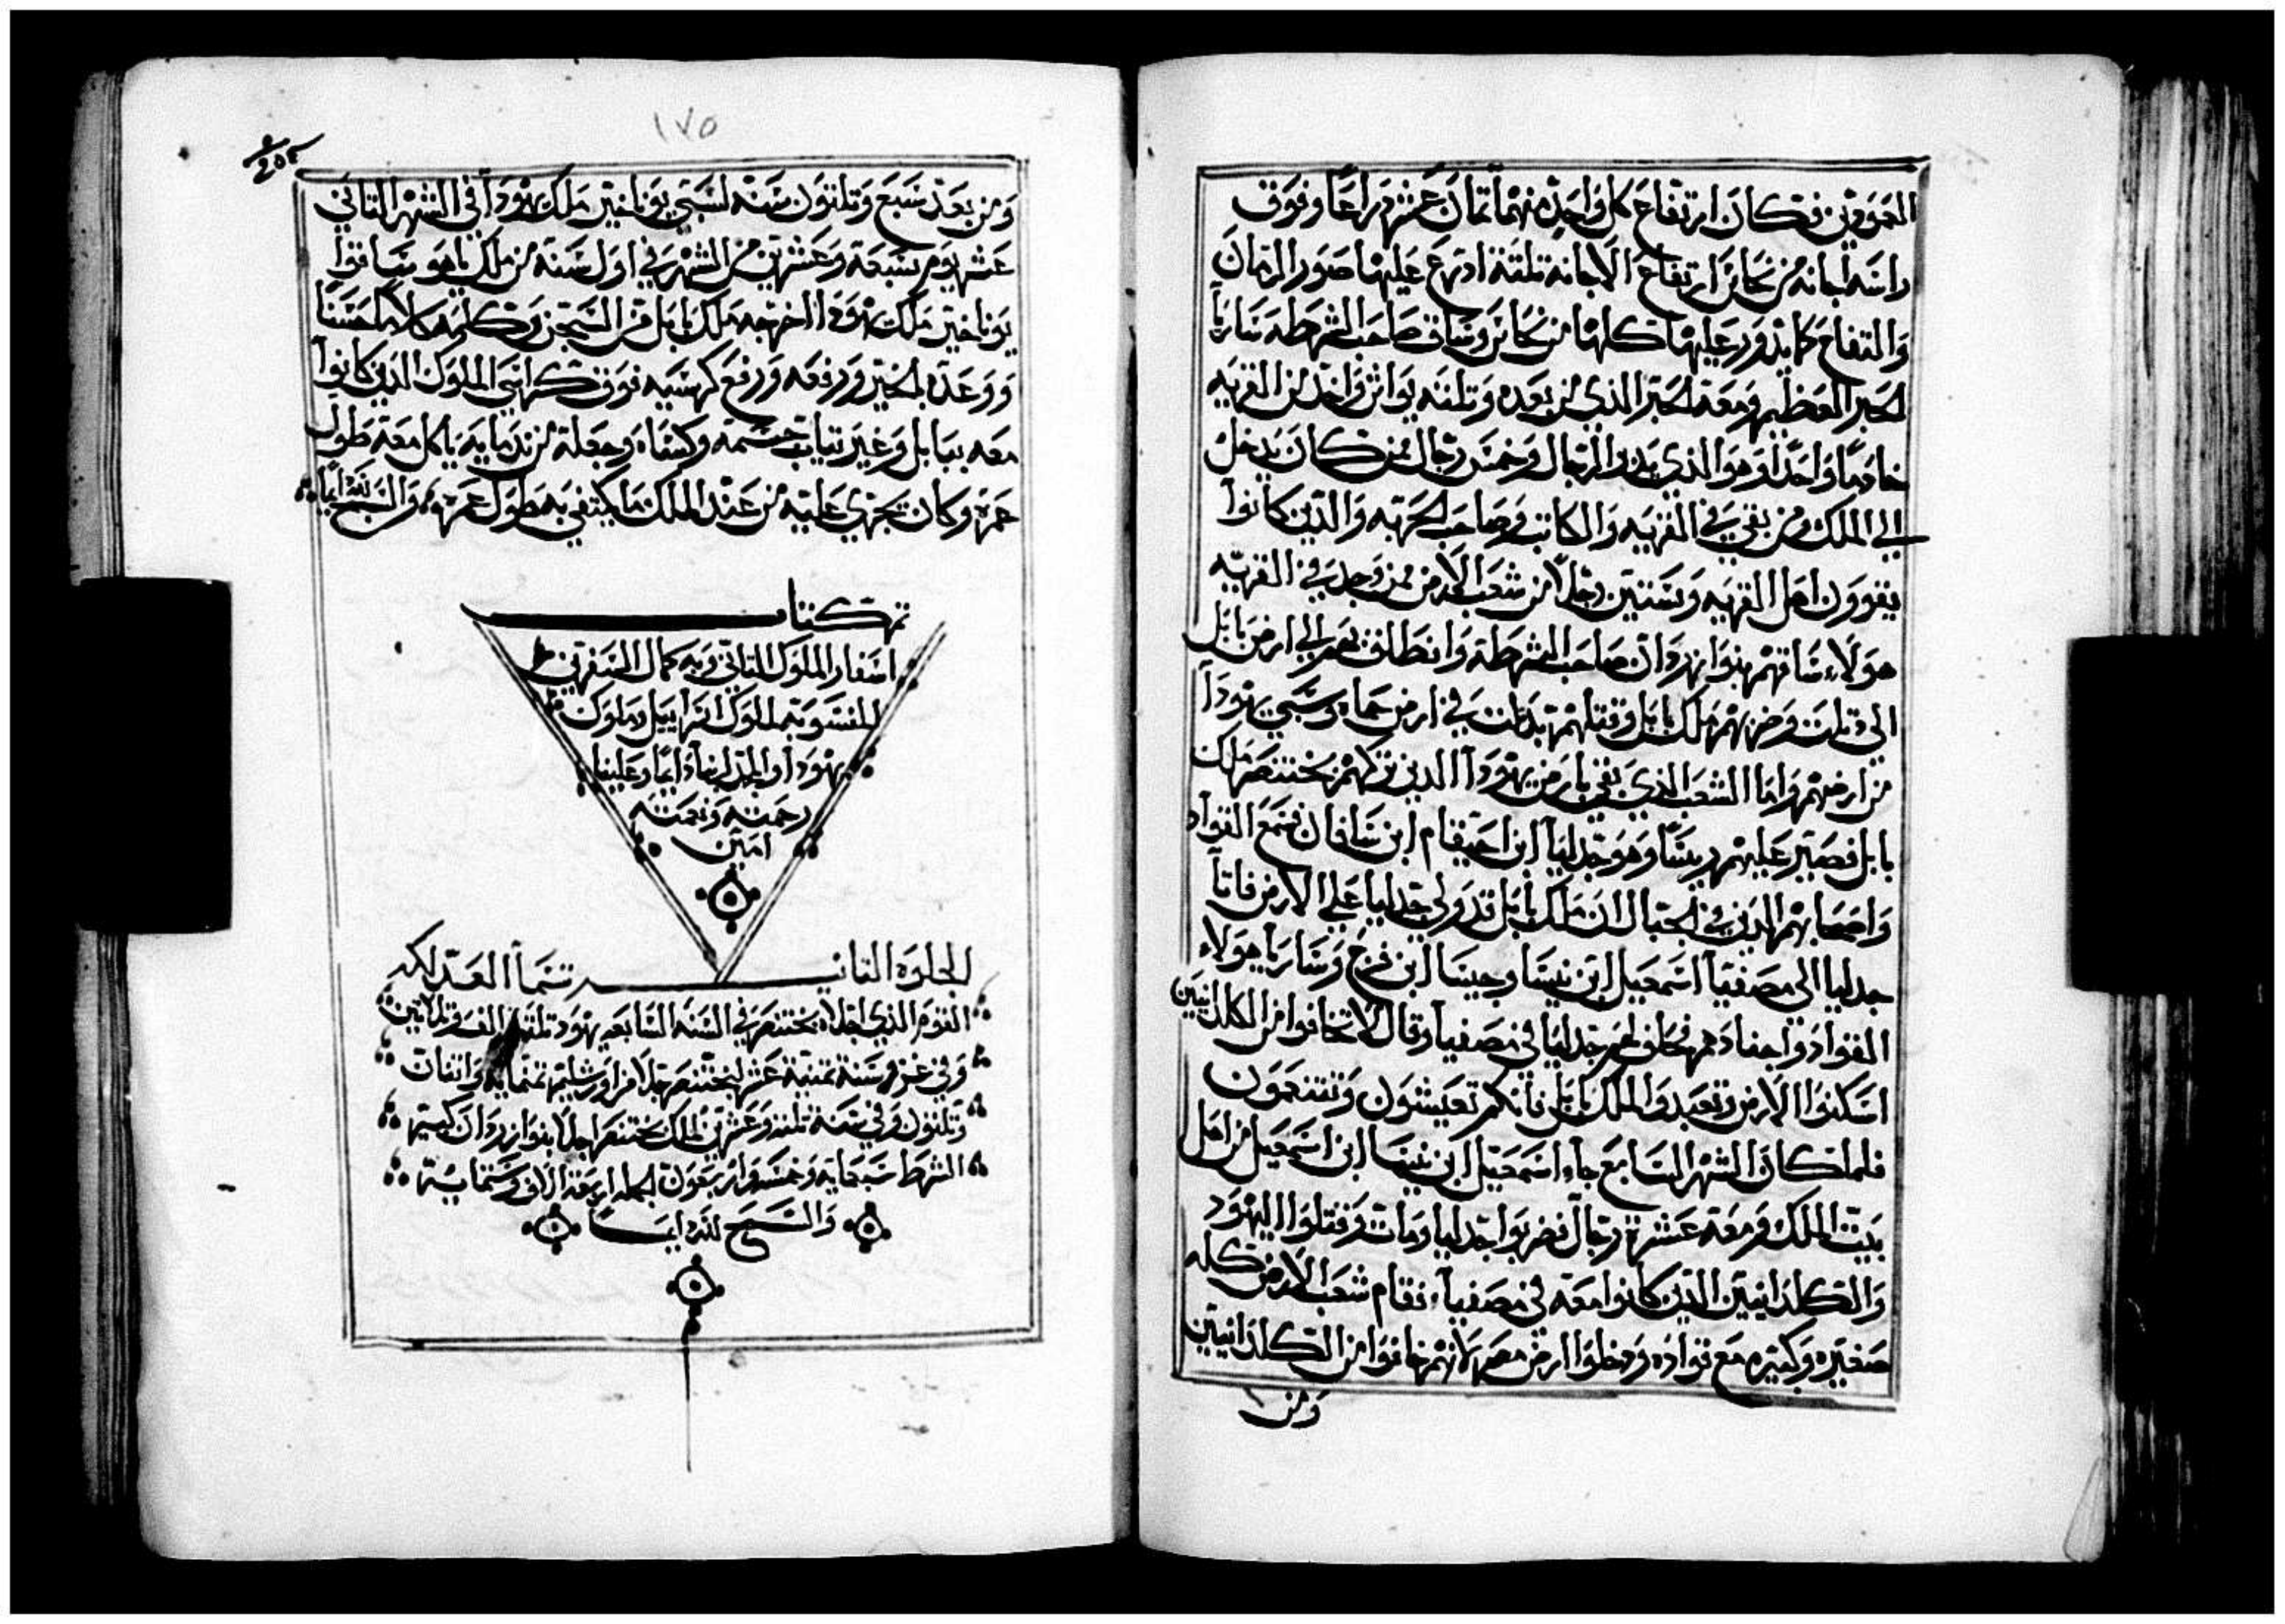 العمودين فكان ارتفاع كل واحد منهما ثمان عشر دراعا وفوق
راسه اجانه من نحاس ارتفاع الاجانه ثلثة ادرع عليها صور الرمان
والتفاح كما يدور عليها كلها من نحاس وساق صاحب الشرطه ساريا
الحبر العظيم ومعه الحبر الذي من بعده وثلثه بواب واخد من القريه
خادما واحدا وهو الذي يلي الرجال وخمسه رجال ممن كان يدخل
الي الملك ومن بقي في القريه والكاتب وصاحب الحربه والذين كانوا
يقوون اهل القريه وستين رجلا من شعب الارض ممن وجد في القريه
هولاء ساقهم بنوازردان صاحب الشرطه وانطلق بهم الي ارض بابل
الي دبلت وضربهم ملك بابل وقتلهم بدبلت في ارض حماه وسبي يهودا
من ارضهم واما الشعب الذي بقي بارض يهودا الذين تركهم بختنصر ملك
بابل فصير عليهم ريسا وهو جدليا ابن احيقام ابن سافان فسمع القواد
واصحابهم الذين في الجبال ان ملك بابل قد ولي جدليا علي الارض فاتا
جدليا الى مصفيا اسمعيل ابن نينسا وحينسا ابن فرح وساريا هولاء
القواد واجنادهم فحلف لهم جدليا في مصفيا وقال لا تخافوا من الكلدانيين
اسكنوا الارض وتعبدوا لملك بابل فانكم تعيشون وتتنعمون
فلما كان الشهر السابع جاء اسمعيل ابن نينسا ابن اسمعيل من اهل
بيت الملك ومعه عشرة رجال فضربوا جدليا ومات وقتلوا اليهود
والكلدانيين الذين كانوا معه في مصفيا فقام شعب الارض كله
صغيره وكبيره مع قواده ودخلوا ارض مصر لانهم خافوا من الكلدانيين
ومن
١٧٥
ومن بعد سبع وثلثون سنه لسبي يوناخير ملك يهودا في الشهر الثاني
عشر يوم سبعة وعشرين من الشهر في اول سنه من ملك ساقوا
يوناخير ملك يهودا اخرجه ملك بابل من السجن وكلمه كلاما حسنا
ووعده بالخير ورفعه ورفع كرسيه فوق كراسي الملوك الذين كانوا
معه ببابل وغير ثياب حبسه وكساه وجعله من ندمايه ياكل معه طول
عمره وكان يجري عليه من عند الملك ما يكتفي به طول عمره والسبح لله دايما
تم كتاب
اسفار الملوك الثاني وبه كمال السفرين
المنسوبة لملوك اسراييل وملوك
يهودا والمجد لربنا دايما وعلينا
رحمته ونعمته
امين
للجلوه الثاني تتما العدلكه
القوم الذي اجلاه بختنصر في السنه السابعه يهود ثلثة الف وثلاتين
وفي سنة تمنية عشر لبختنصر جلا من اورشليم تمنمايه واتنان
وثلثون وفي سنه ثلثه وعشرين لملك بختنصر اجلا بنوازردان كبير
الشرط سبعمايه وخمسه واربعون الجمله اربعة الاف وستمايه
والسبح لله دايما